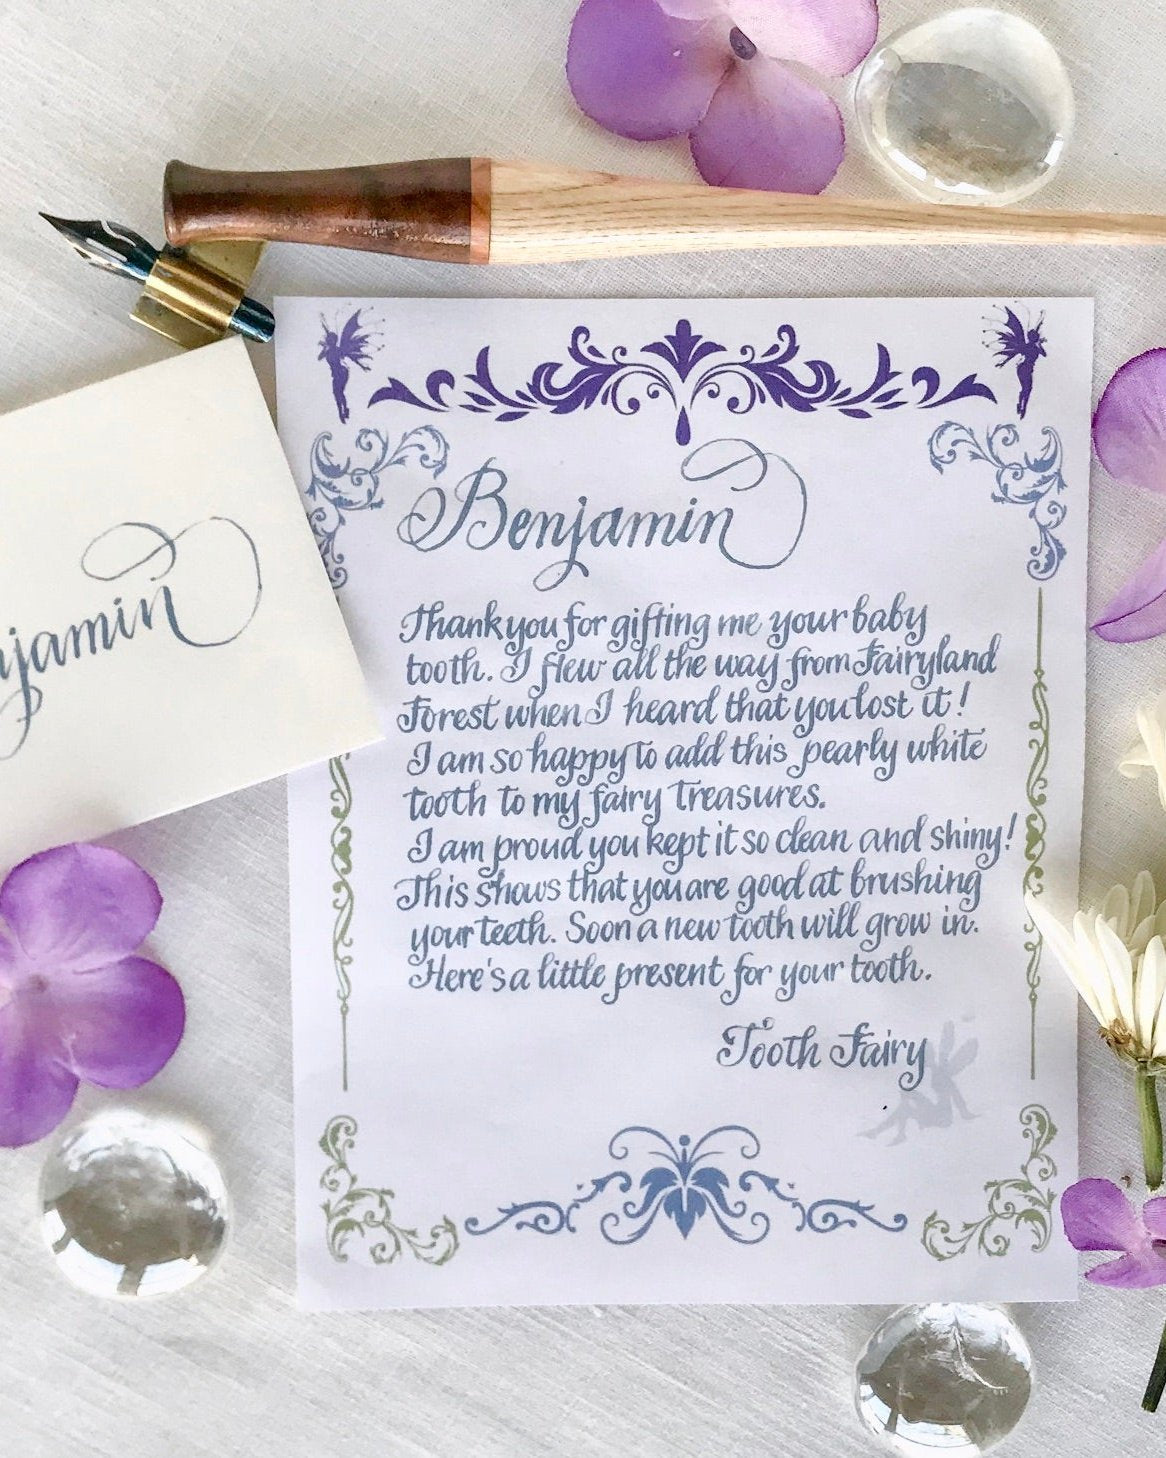 Benjamin
Thank you for gifting me your baby
tooth. I flew all the way from Fairyland
Forest when I heard that you lost it!
I am so happy to add this pearly white
tooth to my fairy treasures.
I am proud you kept it so clean and shiny!
This shows that you are good at brushing
your teeth. Soon a new tooth will grow in.
Here's a little present for your tooth.
Tooth Fairy
njamin